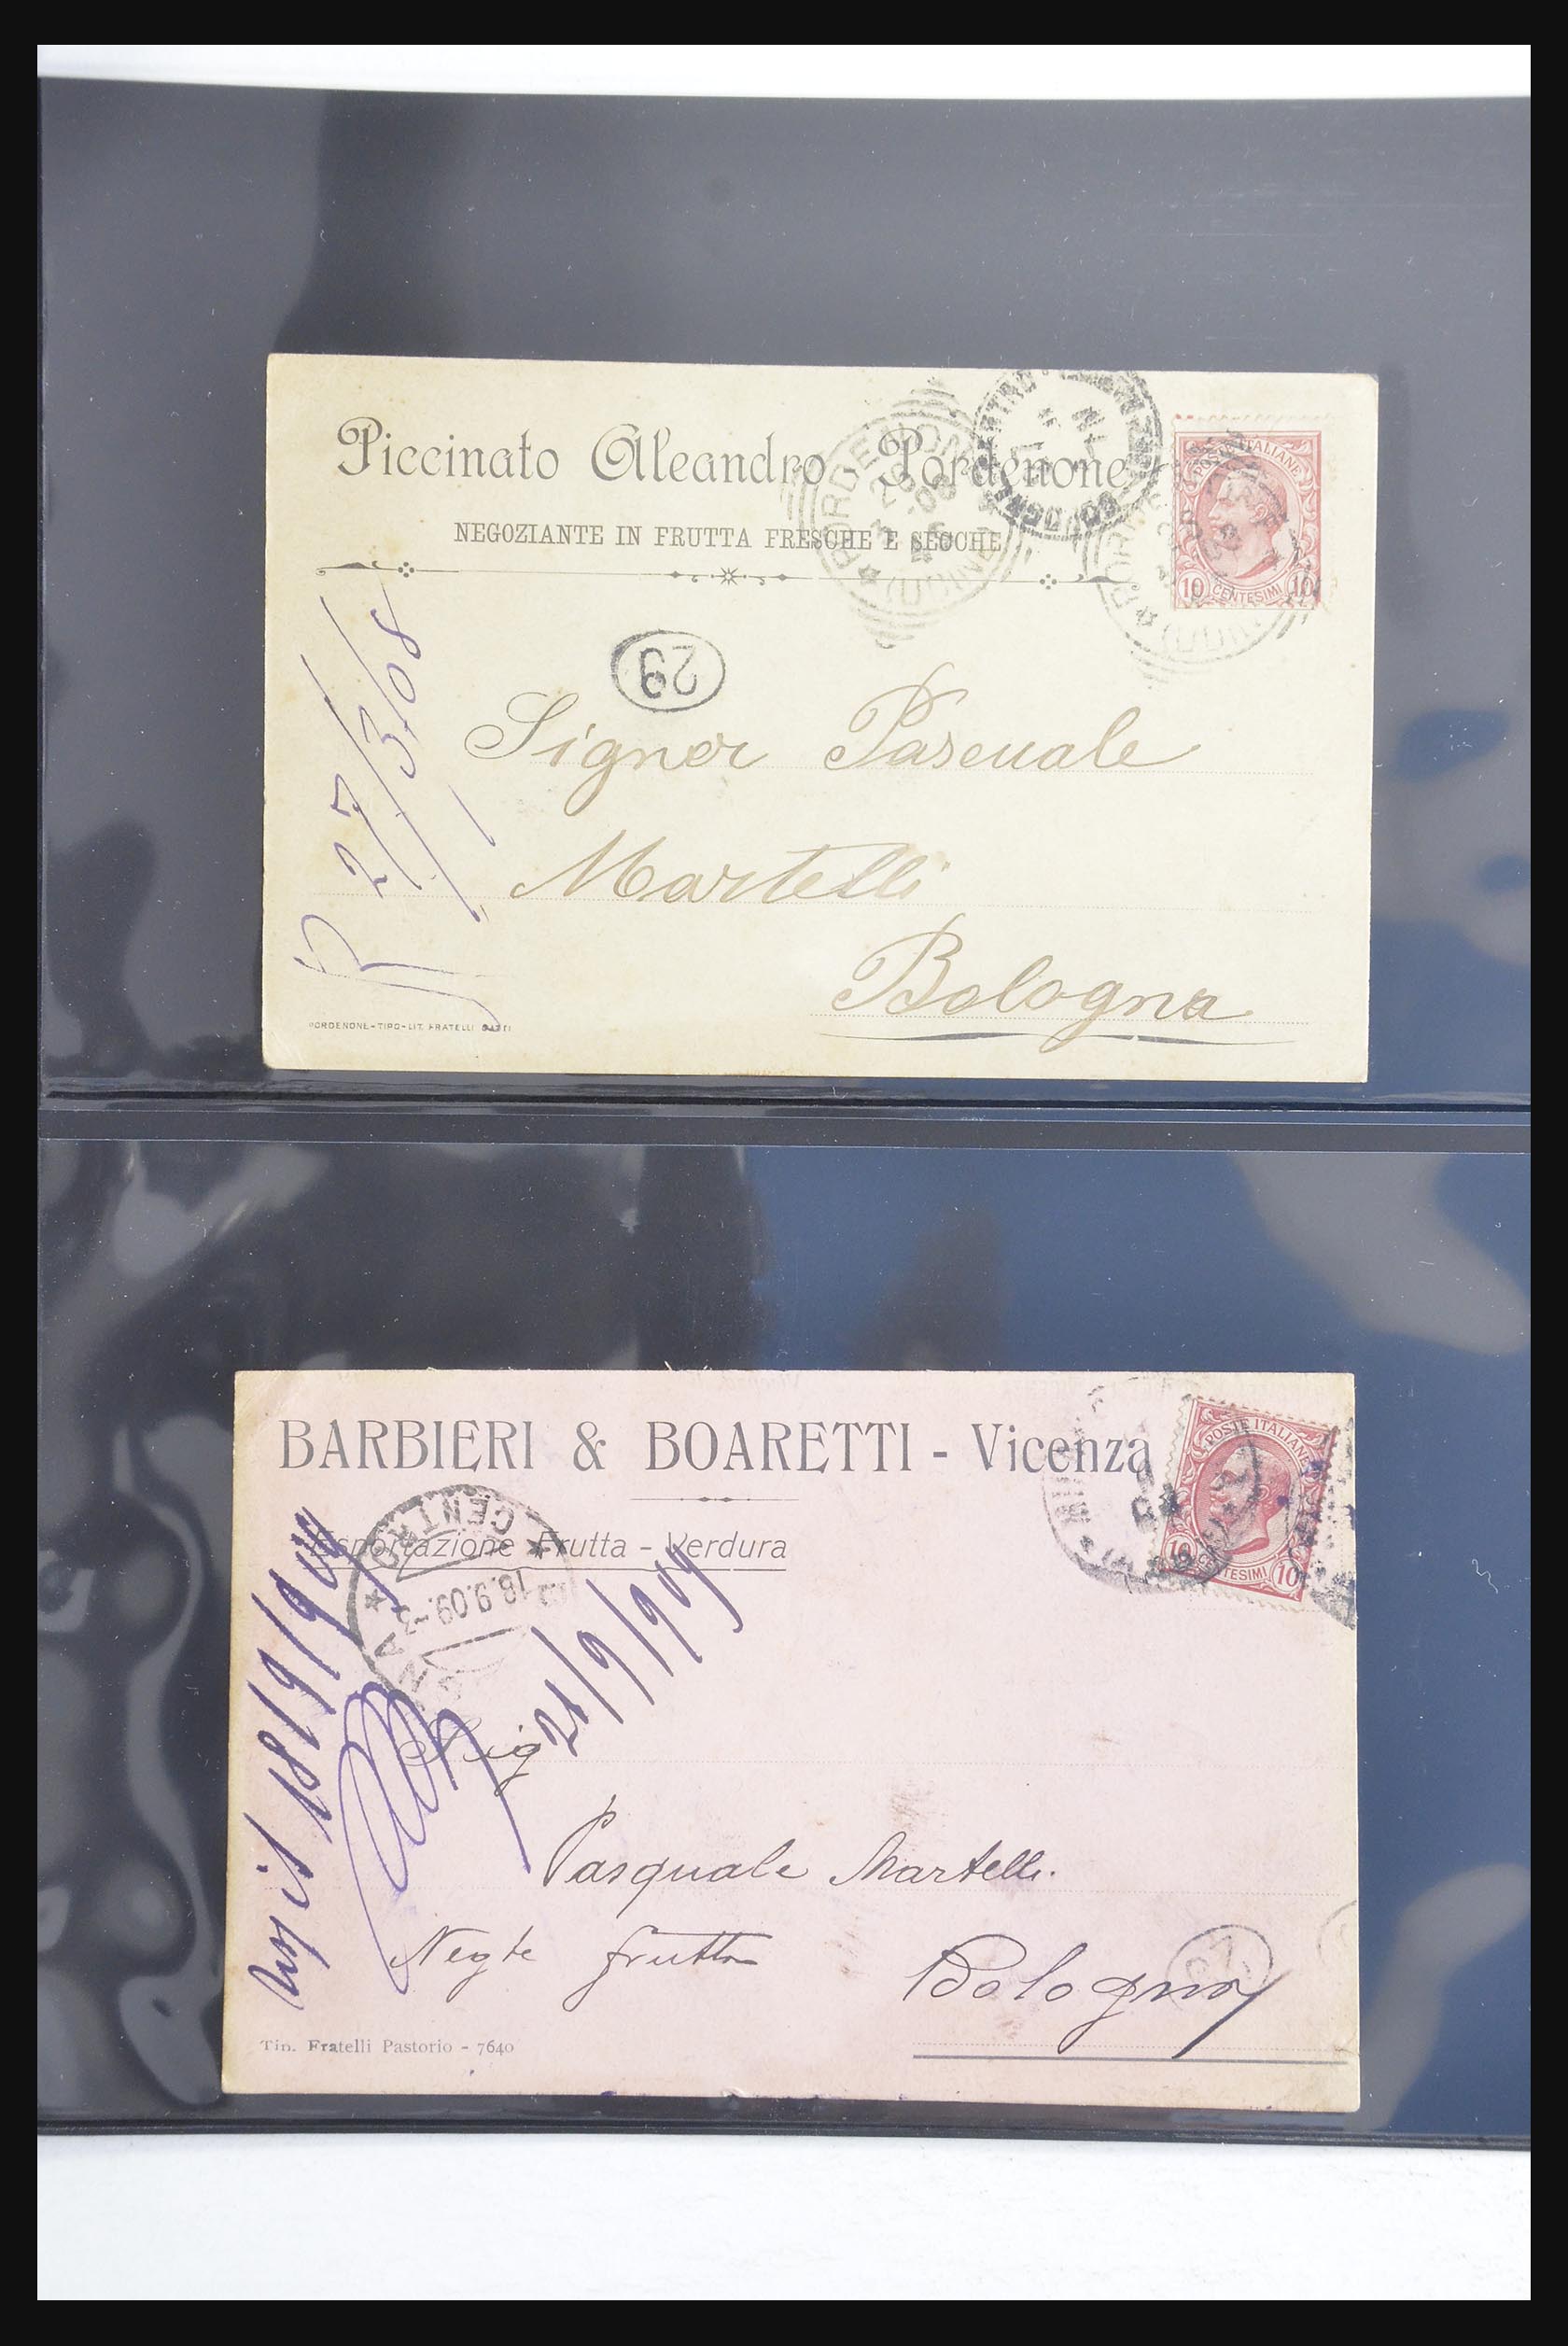 Piccinato Aleandro - Pordenone
NEGOZIANTE IN FRUTTA FRESCHE E SECCHE
POSTE ITALIANE
10 CENTESIMI 10
PORDENONE
(UDINE)
29
27/3/08
Signor Pascuale
Martelli
Bologna
PORDENONE-TIPO-LIT. FRATELLI GATTI
BARBIERI & BOARETTI - Vicenza
Esportazione Frutta - Verdura
POSTE ITALIANE
10 CENTESIMI 10
CENTRO
18.9.09.-3
18/9/909
21/9/909
Sig
Pasquale Martelli.
Negte frutta
Bologna
Tip. Fratelli Pastorio - 7640